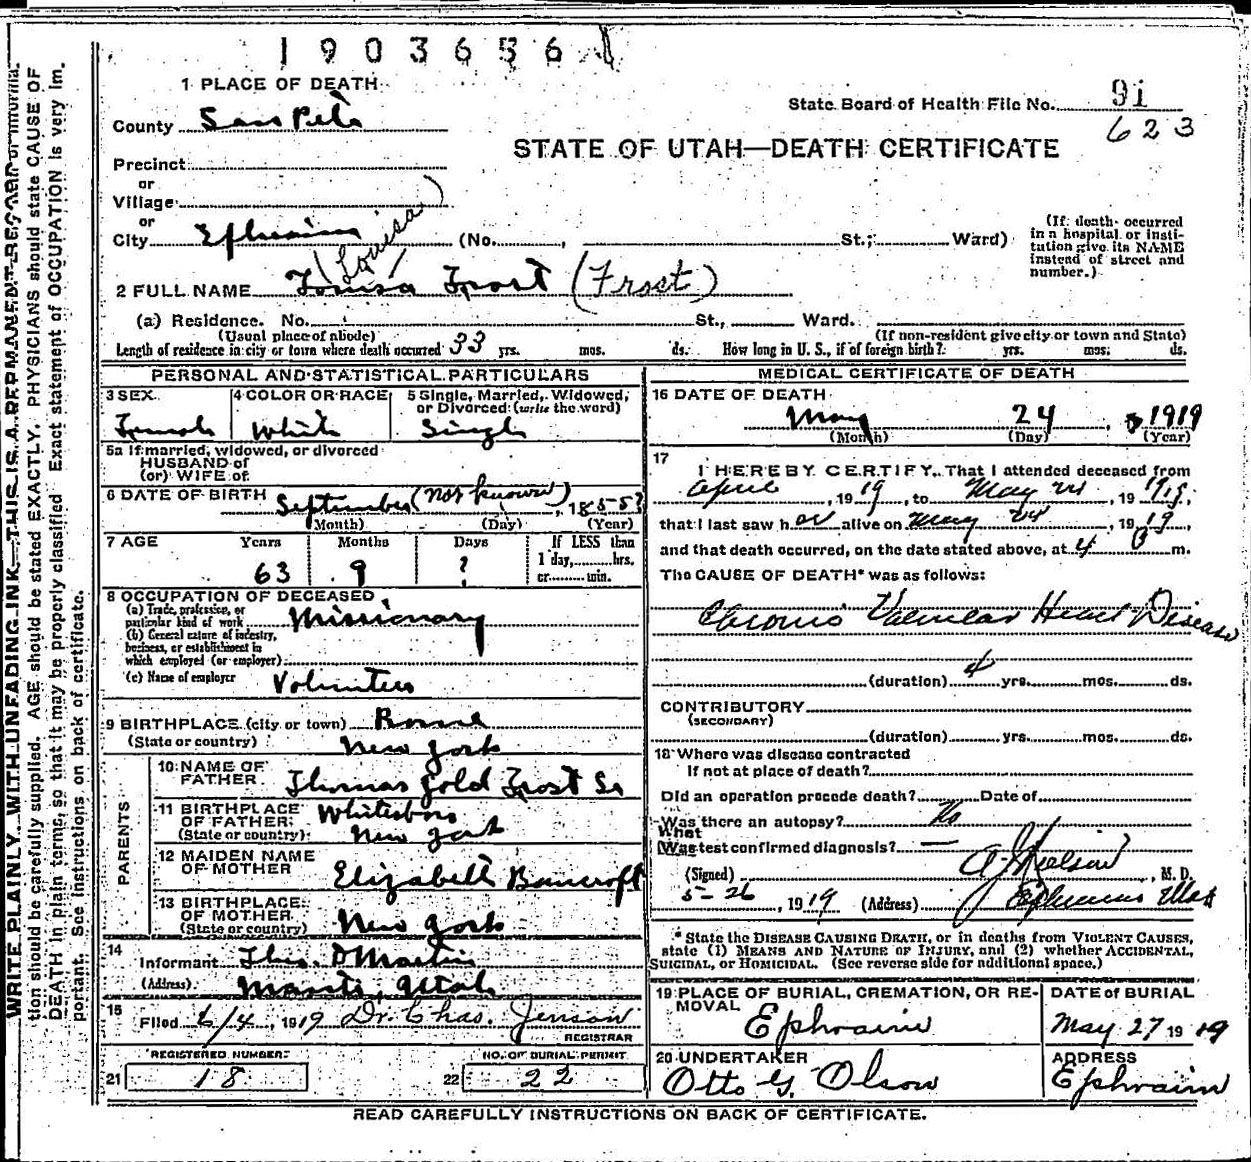 1903656
1 PLACE OF DEATH
State Board of Health File No. 91
623
County San Pete
STATE OF UTAH—DEATH CERTIFICATE
Precinct
or
Village
or
City Ephraim (No. , St.; Ward)
(If death occurred in a hospital or institution give its NAME instead of street and number.)
(Louisa)
2 FULL NAME Louisa Frost (Frost)
(a) Residence. No. St., Ward.
(Usual place of abode) (If non-resident give city or town and State)
Length of residence in city or town where death occurred 33 yrs. mos. ds. How long in U. S., if of foreign birth? yrs. mos. ds.
PERSONAL AND STATISTICAL PARTICULARS
3 SEX 4 COLOR OR RACE 5 Single, Married, Widowed, or Divorced (write the word)
Female White Single
5a If married, widowed, or divorced
HUSBAND of
(or) WIFE of
6 DATE OF BIRTH September (not known), 1855?
(Month) (Day) (Year)
7 AGE Years Months Days If LESS than
1 day, hrs.
or min.
63 9 ?
8 OCCUPATION OF DECEASED
(a) Trade, profession, or particular kind of work Missionary
(b) General nature of industry, business, or establishment in which employed (or employer)
(c) Name of employer Volunteer
9 BIRTHPLACE (city or town) Rome
(State or country) New York
PARENTS
10 NAME OF FATHER Thomas Gold Frost Sr
11 BIRTHPLACE OF FATHER Whitesboro
(State or country) New York
12 MAIDEN NAME OF MOTHER Elizabeth Bancroft
13 BIRTHPLACE OF MOTHER
(State or country) New York
14
Informant Theo. D Martin
(Address) Manti, Utah
15
Filed 6/4, 1919 Dr. Chas. Jenson
REGISTRAR
REGISTERED NUMBER NO. OF BURIAL PERMIT
21 18 22 22
MEDICAL CERTIFICATE OF DEATH
16 DATE OF DEATH
May 24, 1919
(Month) (Day) (Year)
17
I HEREBY CERTIFY, That I attended deceased from
April, 1919, to May 24, 1919,
that I last saw her alive on May 24, 1919,
and that death occurred, on the date stated above, at 4 P m.
The CAUSE OF DEATH* was as follows:
Chronic Valvular Heart Disease
(duration) 4 yrs. mos. ds.
CONTRIBUTORY
(SECONDARY)
(duration) yrs. mos. ds.
18 Where was disease contracted
If not at place of death?
Did an operation precede death? Date of
Was there an autopsy? No
What
(Was test confirmed diagnosis? —
(Signed) A J Nielson, M. D.
5-26, 1919 (Address) Ephraim Utah
* State the DISEASE CAUSING DEATH, or in deaths from VIOLENT CAUSES,
state (1) MEANS AND NATURE OF INJURY, and (2) whether ACCIDENTAL,
SUICIDAL, or HOMICIDAL. (See reverse side for additional space.)
19 PLACE OF BURIAL, CREMATION, OR REMOVAL DATE of BURIAL
Ephraim May 27 1919
20 UNDERTAKER ADDRESS
Otto G. Olson Ephraim
READ CAREFULLY INSTRUCTIONS ON BACK OF CERTIFICATE.
WRITE PLAINLY WITH UNFADING INK—THIS IS A PERMANENT RECORD
tion should be carefully supplied. AGE should be stated EXACTLY. PHYSICIANS should state CAUSE OF
DEATH in plain terms, so that it may be properly classified. Exact statement of OCCUPATION is very im-
portant. See instructions on back of certificate.